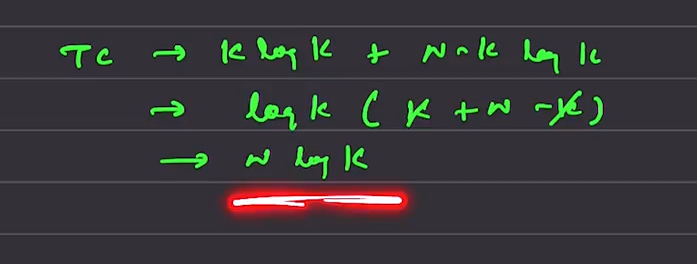 TC → K log K + N-K log K
→ log K ( K + N - K )
→ N log K